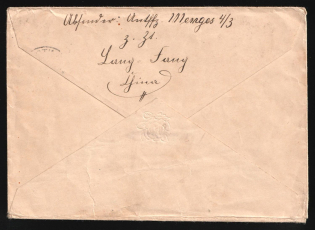 Absender: Untffz Menges 4/3
z. Zt.
Lang-Fang
China